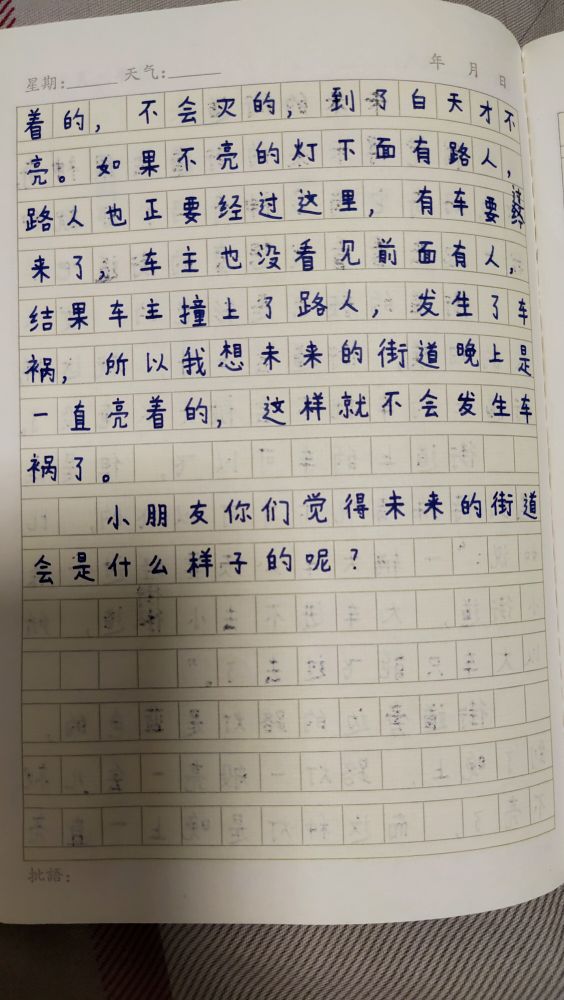 星期:
天气:
年 月 日
着的，不会灭的，到了白天才不
亮。如果不亮的灯下面有路人，
路人也正要经过这里，有车要过
来了，车主也没看见前面有人，
结果车主撞上了路人，发生了车
祸，所以我想未来的街道晚上是
一直亮着的，这样就不会发生车
祸了。
小朋友你们觉得未来的街道
会是什么样子的呢？
批語: